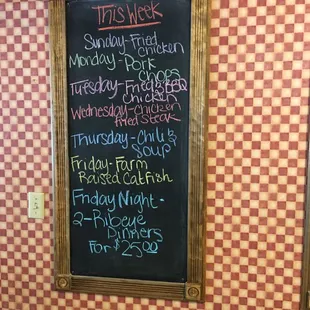 This Week
Sunday-Fried
Chicken
Monday-Pork
Chops
Tuesday-Fried & BBQ
Chicken
Wednesday-Chicken
fried Steak
Thursday-Chili &
Soup
Friday-Farm
Raised Catfish
Friday Night-
2-Ribeye
Dinners
For $25.00